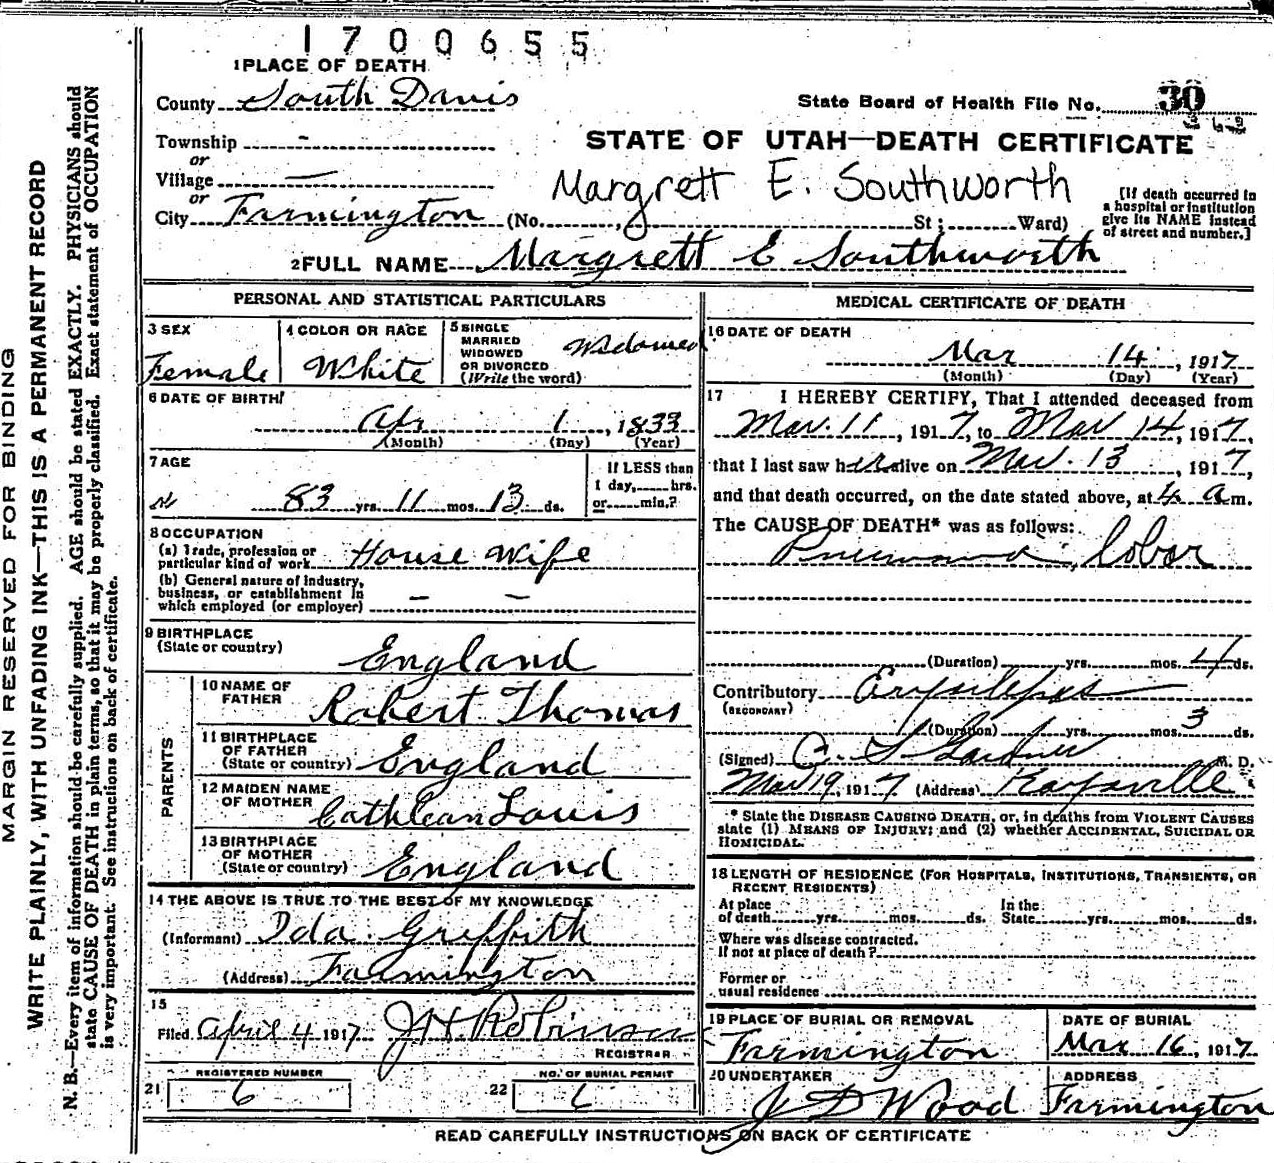 1700655
1 PLACE OF DEATH
County South Davis
State Board of Health File No. 30
Township -
or
STATE OF UTAH—DEATH CERTIFICATE
Village —
or
Margrett E. Southworth
City Farmington (No. St; Ward)
[If death occurred in a hospital or institution give its NAME instead of street and number.]
2 FULL NAME Margrett E Southworth
PERSONAL AND STATISTICAL PARTICULARS
3 SEX Female
4 COLOR OR RACE White
5 SINGLE MARRIED WIDOWED OR DIVORCED (Write the word) Widowed
6 DATE OF BIRTH
Apr 1, 1833
(Month) (Day) (Year)
7 AGE
83 yrs. 11 mos. 13 ds.
If LESS than 1 day, hrs. or min.?
8 OCCUPATION
(a) Trade, profession or particular kind of work House Wife
(b) General nature of industry, business, or establishment in which employed (or employer) - -
9 BIRTHPLACE (State or country) England
PARENTS
10 NAME OF FATHER Robert Thomas
11 BIRTHPLACE OF FATHER (State or country) England
12 MAIDEN NAME OF MOTHER Cathlean Louis
13 BIRTHPLACE OF MOTHER (State or country) England
14 THE ABOVE IS TRUE TO THE BEST OF MY KNOWLEDGE
(Informant) Ida Griffith
(Address) Farmington
15
Filed April 4 1917 J H Robinson
REGISTRAR
REGISTERED NUMBER
21 6
NO. OF BURIAL PERMIT
22 6
MEDICAL CERTIFICATE OF DEATH
16 DATE OF DEATH
Mar 14, 1917
(Month) (Day) (Year)
17 I HEREBY CERTIFY, That I attended deceased from
Mar. 11, 1917, to Mar 14, 1917,
that I last saw her alive on Mar. 13, 1917,
and that death occurred, on the date stated above, at 4 a m.
The CAUSE OF DEATH* was as follows:
Pneumonia, lobar
(Duration) yrs. mos. 4 ds.
Contributory Erysipelas
(SECONDARY)
(Duration) yrs. mos. 3 ds.
(Signed) C. S Gardner M. D.
Mar 19, 1917 (Address) Kaysville
* State the DISEASE CAUSING DEATH, or, in deaths from VIOLENT CAUSES
state (1) MEANS OF INJURY; and (2) whether ACCIDENTAL, SUICIDAL OR
HOMICIDAL.
18 LENGTH OF RESIDENCE (FOR HOSPITALS, INSTITUTIONS, TRANSIENTS, OR
RECENT RESIDENTS)
At place of death yrs. mos. ds. In the State yrs. mos. ds.
Where was disease contracted.
If not at place of death?
Former or
usual residence
19 PLACE OF BURIAL OR REMOVAL Farmington
DATE OF BURIAL Mar 16, 1917
20 UNDERTAKER J D Wood
ADDRESS Farmington
READ CAREFULLY INSTRUCTIONS ON BACK OF CERTIFICATE
MARGIN RESERVED FOR BINDING
WRITE PLAINLY, WITH UNFADING INK—THIS IS A PERMANENT RECORD
N. B.—Every item of information should be carefully supplied. AGE should be stated EXACTLY. PHYSICIANS should
state CAUSE OF DEATH in plain terms, so that it may be properly classified. Exact statement of OCCUPATION
is very important. See instructions on back of certificate.